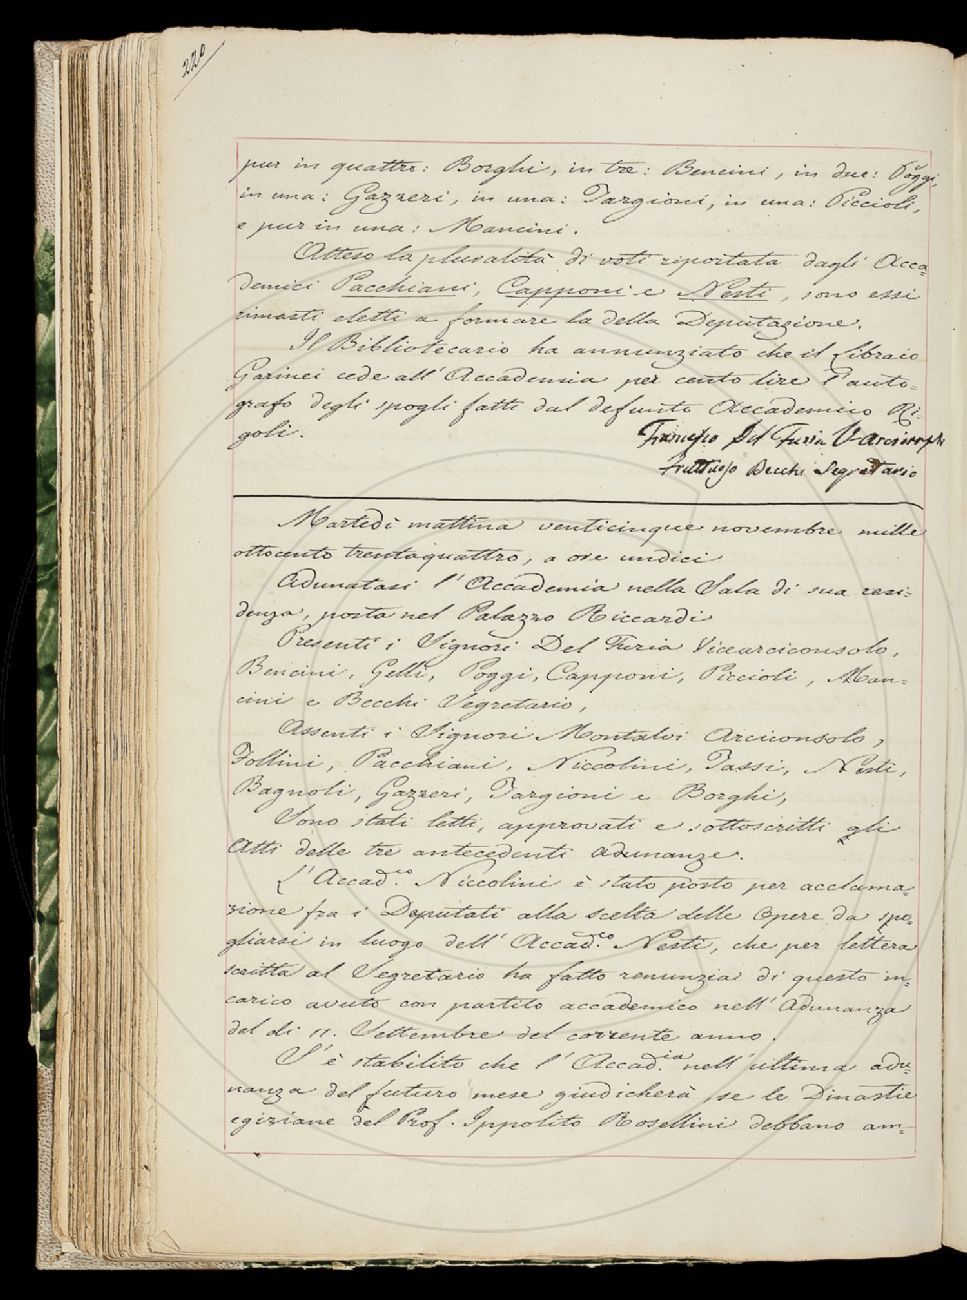 220
pur in quattro: Borghi, in tre: Bencini, in due: Poggi,
in una: Gazzeri, in una: Targioni, in una: Piccioli,
e pur in una: Mancini.
Atteso la pluralità di voti riportata dagli Acca=
demici Pacchiani, Capponi e Nesti, sono essi
rimasti eletti a formare la della Deputazione.
Il Bibliotecario ha annunziato che il Libraio
Garinei cede all' Accademia per cento lire l' auto=
grafo degli spogli fatti dal defunto Accademico Ri=
goli.
Francesco Del Furia V. Arciconsolo
Fruttuoso Becchi Segretario
Martedì mattina venticinque novembre mille
ottocento trentaquattro, a ore undici
Adunatasi l' Accademia nella Sala di sua resi=
denza, posta nel Palazzo Riccardi
Presenti i Signori Del Furia Vicearciconsolo,
Bencini, Gelli, Poggi, Capponi, Piccioli, Man=
cini e Becchi Segretario,
Assenti i Signori Montalvi Arciconsolo,
Follini, Pacchiani, Niccolini, Tassi, Nesti,
Bagnoli, Gazzeri, Targioni e Borghi,
Sono stati letti, approvati e sottoscritti gli
Atti delle tre antecedenti adunanze.
L' Accad.co Niccolini è stato posto per acclama=
zione fra i Deputati alla scelta delle Opere da spo=
gliarsi in luogo dell' Accad.co Nesti, che per lettera
scritta al Segretario ha fatto renunzia di questo in=
carico avuto con partito accademico nell' Adunanza
del dì 11. Settembre del corrente anno.
S' è stabilito che l' Accad.ia nell' ultima adu=
nanza del futuro mese giudicherà se le Dinastie
egiziane del Prof. Ippolito Rosellini debbano am=